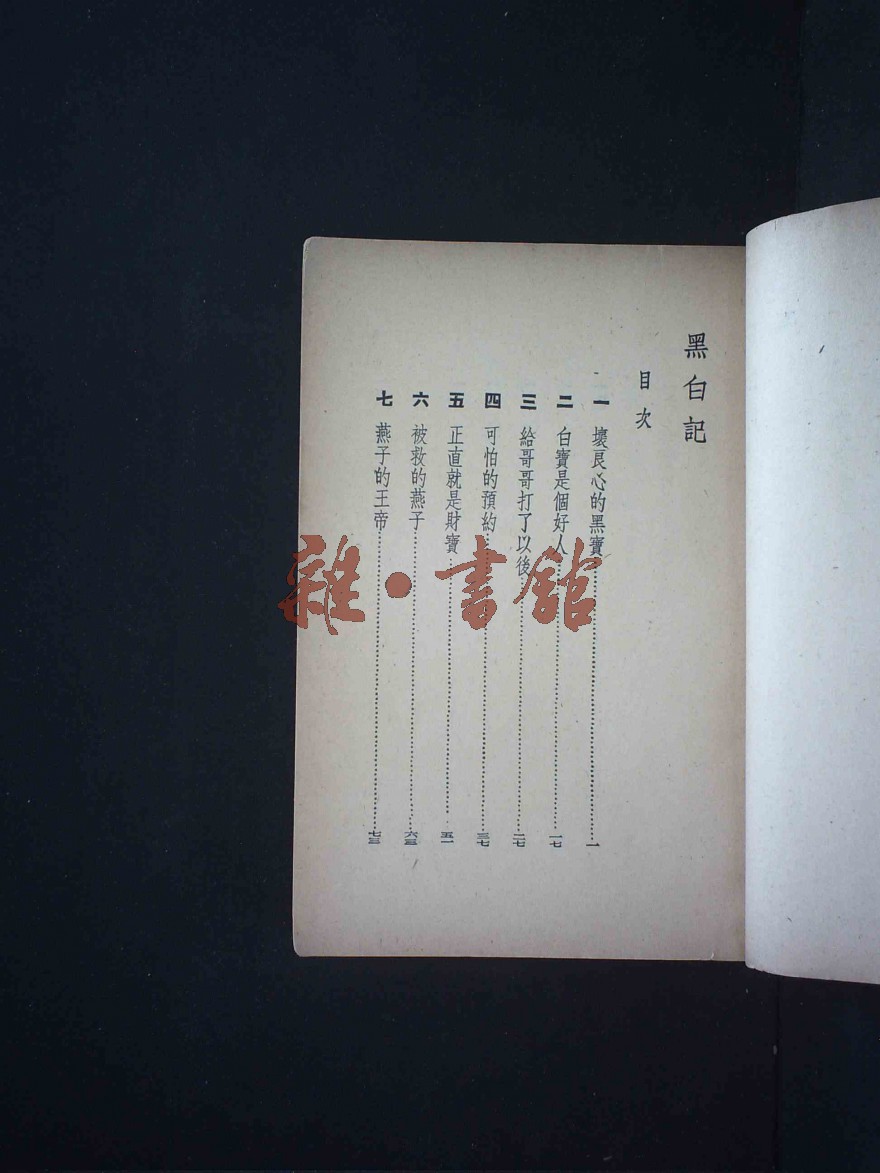 黑白記
目次
一 壞良心的黑寶……一
二 白寶是個好人……一七
三 給哥哥打了以後……二七
四 可怕的預約……三七
五 正直就是財寶……五一
六 被救的燕子……六三
七 燕子的王帝……七三
雜·書館